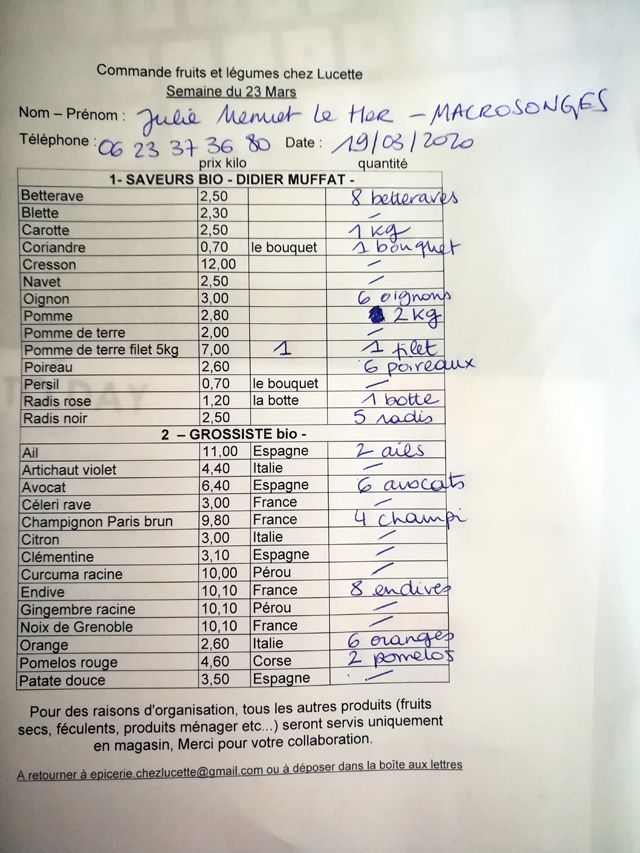 Commande fruits et légumes chez Lucette
Semaine du 23 Mars
Nom – Prénom : Julie Menuet Le Her – MACROSONGES
Téléphone : 06 23 37 36 80 Date : 19/03/2020
prix kilo quantité
1- SAVEURS BIO - DIDIER MUFFAT -
Betterave 2,50 8 betteraves
Blette 2,30 –
Carotte 2,50 1 kg
Coriandre 0,70 le bouquet 1 bouquet
Cresson 12,00 –
Navet 2,50 –
Oignon 3,00 6 oignons
Pomme 2,80 2 kg
Pomme de terre 2,00 –
Pomme de terre filet 5kg 7,00 1 1 filet
Poireau 2,60 6 poireaux
Persil 0,70 le bouquet –
Radis rose 1,20 la botte 1 botte
Radis noir 2,50 5 radis
2 – GROSSISTE bio -
Ail 11,00 Espagne 2 ails
Artichaut violet 4,40 Italie –
Avocat 6,40 Espagne 6 avocats
Céleri rave 3,00 France –
Champignon Paris brun 9,80 France 4 champi
Citron 3,00 Italie –
Clémentine 3,10 Espagne –
Curcuma racine 10,00 Pérou –
Endive 10,10 France 8 endives
Gingembre racine 10,10 Pérou –
Noix de Grenoble 10,10 France –
Orange 2,60 Italie 6 oranges
Pomelos rouge 4,60 Corse 2 pomelos
Patate douce 3,50 Espagne –
Pour des raisons d'organisation, tous les autres produits (fruits
secs, féculents, produits ménager etc...) seront servis uniquement
en magasin, Merci pour votre collaboration.
A retourner à epicerie.chezlucette@gmail.com ou à déposer dans la boîte aux lettres